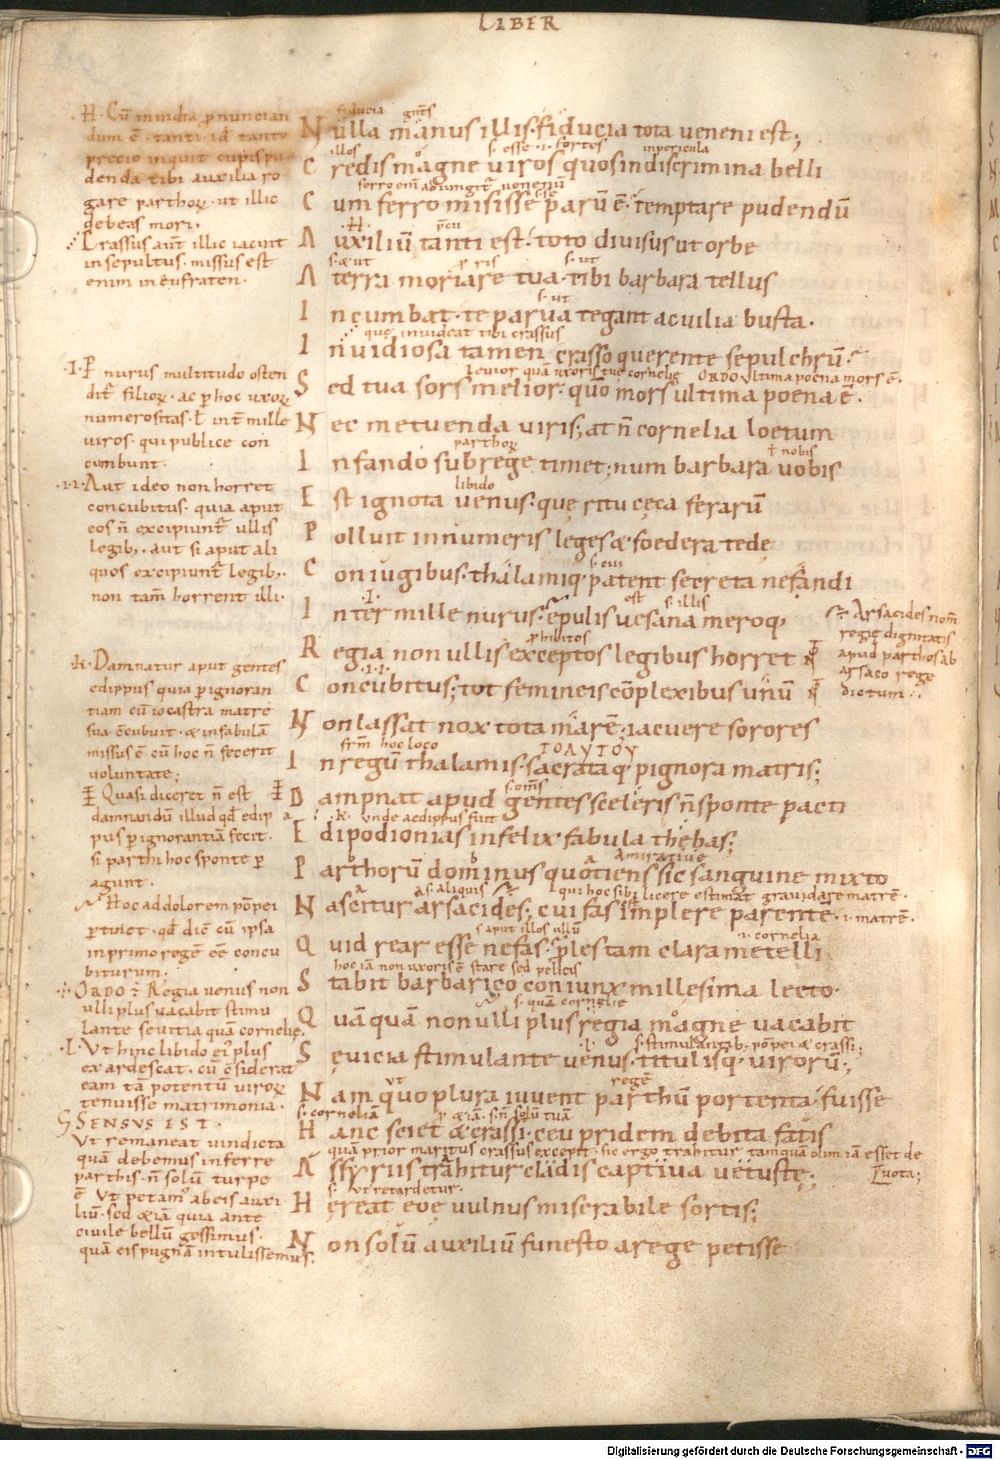 LIBER
H. Cū in indiā pronuncian
dum ē. tanti. idē tanto
precio inquit cupis pu
denda tibi auxilia ro
gare parthoꝝ. ut illic
debeas mori.
Crassus aūt illic iacuit
insepultus. missus est
enim in eufraten.
.I. P nurus multitudo osten
dit̄ filioꝝ. ac p hoc uxoꝝ
numerositas. ł int̄ mille
uiros. qui publice con
cumbunt.
.I.I. Aut ideo non horret
concubitus. quia aput
eos n̄ excipiunt̄ ullis
legib;. aut si aput ali
quos excipiunt̄ legib;.
non tam̄ horrent illi.
.K. Damnatur aput gentes
edippus quia p ignoran
tiam cū iocastra matre
sua c̄cubuit. & in fabulā
missus ē cū hoc n̄ fecerit
uoluntate;
Quasi diceret n̄ est
damnandū illud qd̄ edip
pus p ignorantiā fecit.
si parthi hoc sponte p
agunt.
Hoc ad dolorem pōpei
p tinet. qd̄ diē cū ipsa
in primo regē eē concu
biturum.
ORDO ē Regia uenus non
ulli plus uacabit stimu
lante seuitia quā cornelie.
.L. Ut hinc libido ei plus
exardescat. cū c̄siderat
eam tā potentū uiroꝝ
tenuisse matrimonia.
SENSUS EST.
Ut remaneat uindicta
quā debemus inferre
parthis. n̄ solū turpe
ē ut petam; ab eis auxi
liū. sed & iā quia ante
ciuile bellū gessimus.
quā eis pugnā intulissemus.
fiducia gn̄tis
Nulla manus illis. fiducia tota ueneni est;
illos s. esse .i. fortes in pericula
Credis magne uiros quos in discrimina belli
ferro em̄ adiungit̄ uenenū esse
Cum ferro misisse parū ē. temptare pudendū
.H. pciū
Auxiliū tanti est. toto diuisus ut orbe
s. & ut s. ut
A terra moriare tua. tibi barbara tellus
s. ut
Incumbat. te parua tegant ac uilia busta.
que inuideat tibi crassus
Inuidiosa tamen crasso querente sepulchrū.
leuior quā uxoris tue cornelie ORDO Ultima poena mors ē.
Sed tua sors melior. quō mors ultima poena ē.
Nec metuenda uiris; at n̄ cornelia loetum
parthoꝝ ł nobis
Infando sub rege timet; num barbara uobis
libido
Est ignota uenus. que ritu ceca ferarū
Polluit innumeris leges & foedera tede
s. cui
Coniugibus. thalamiq; patent secreta nefandi
.I. est s. illis
Inter mille nurus. epulis uesana meroq;
phibitos
Regia non ullis exceptos legibus horret
.I.I.
Concubitus; tot femineis cōplexibus unū
Non lassat nox tota marē; iacuere sorores
frm̄ hoc loco ΙΟΛΥΤΟΥ
In regū thalamis. sacrataq; pignora matris;
s. om̄s
Dampnat apud gentes sceleris n̄ sponte pacti
.K. unde aedippus fuit
Edipodionias infelix fabula thebas;
Amiratiue
Parthorū dominus quotiens sic sanguine mixto
s. aliquis qui hoc sibi licere estimat grauidare matrē.
Nascitur arsacides; cui fas implere parente. .i. matrē.
s. aput illos ullū .i. cornelia
Quid rear esse nefas. ples tam clara metelli
hoc iā non uxoris ē stare sed pellicis
Stabit barbarico coniunx millesima lecto.
s. quā cornelie
Quāquā non ulli plus regia magne uacabit
.l. s. stimulantib; pōpei & crassi;
Seuicia stimulante uenus. titulisq; uirorū;
ut regē
Nam quo plura iuuent parthū portenta. fuisse
s. corneliā p & iā. s. n̄ solū tuā
Hanc sciet & crassi. ceu pridem debita fatis
quā prior maritus crassus excepit. sic ergo trahitur tamquā olim iā esset de
uota;
Assyriis trahitur cladis captiua uetuste;
s. ut retardetur.
Hereat eoe uulnus miserabile sortis;
Non solū auxiliū funesto a rege petisse
Arsacides nom̄
regie dignitatis
apud parthos ab
arsaco rege
dictum.
Digitalisierung gefördert durch die Deutsche Forschungsgemeinschaft - DFG